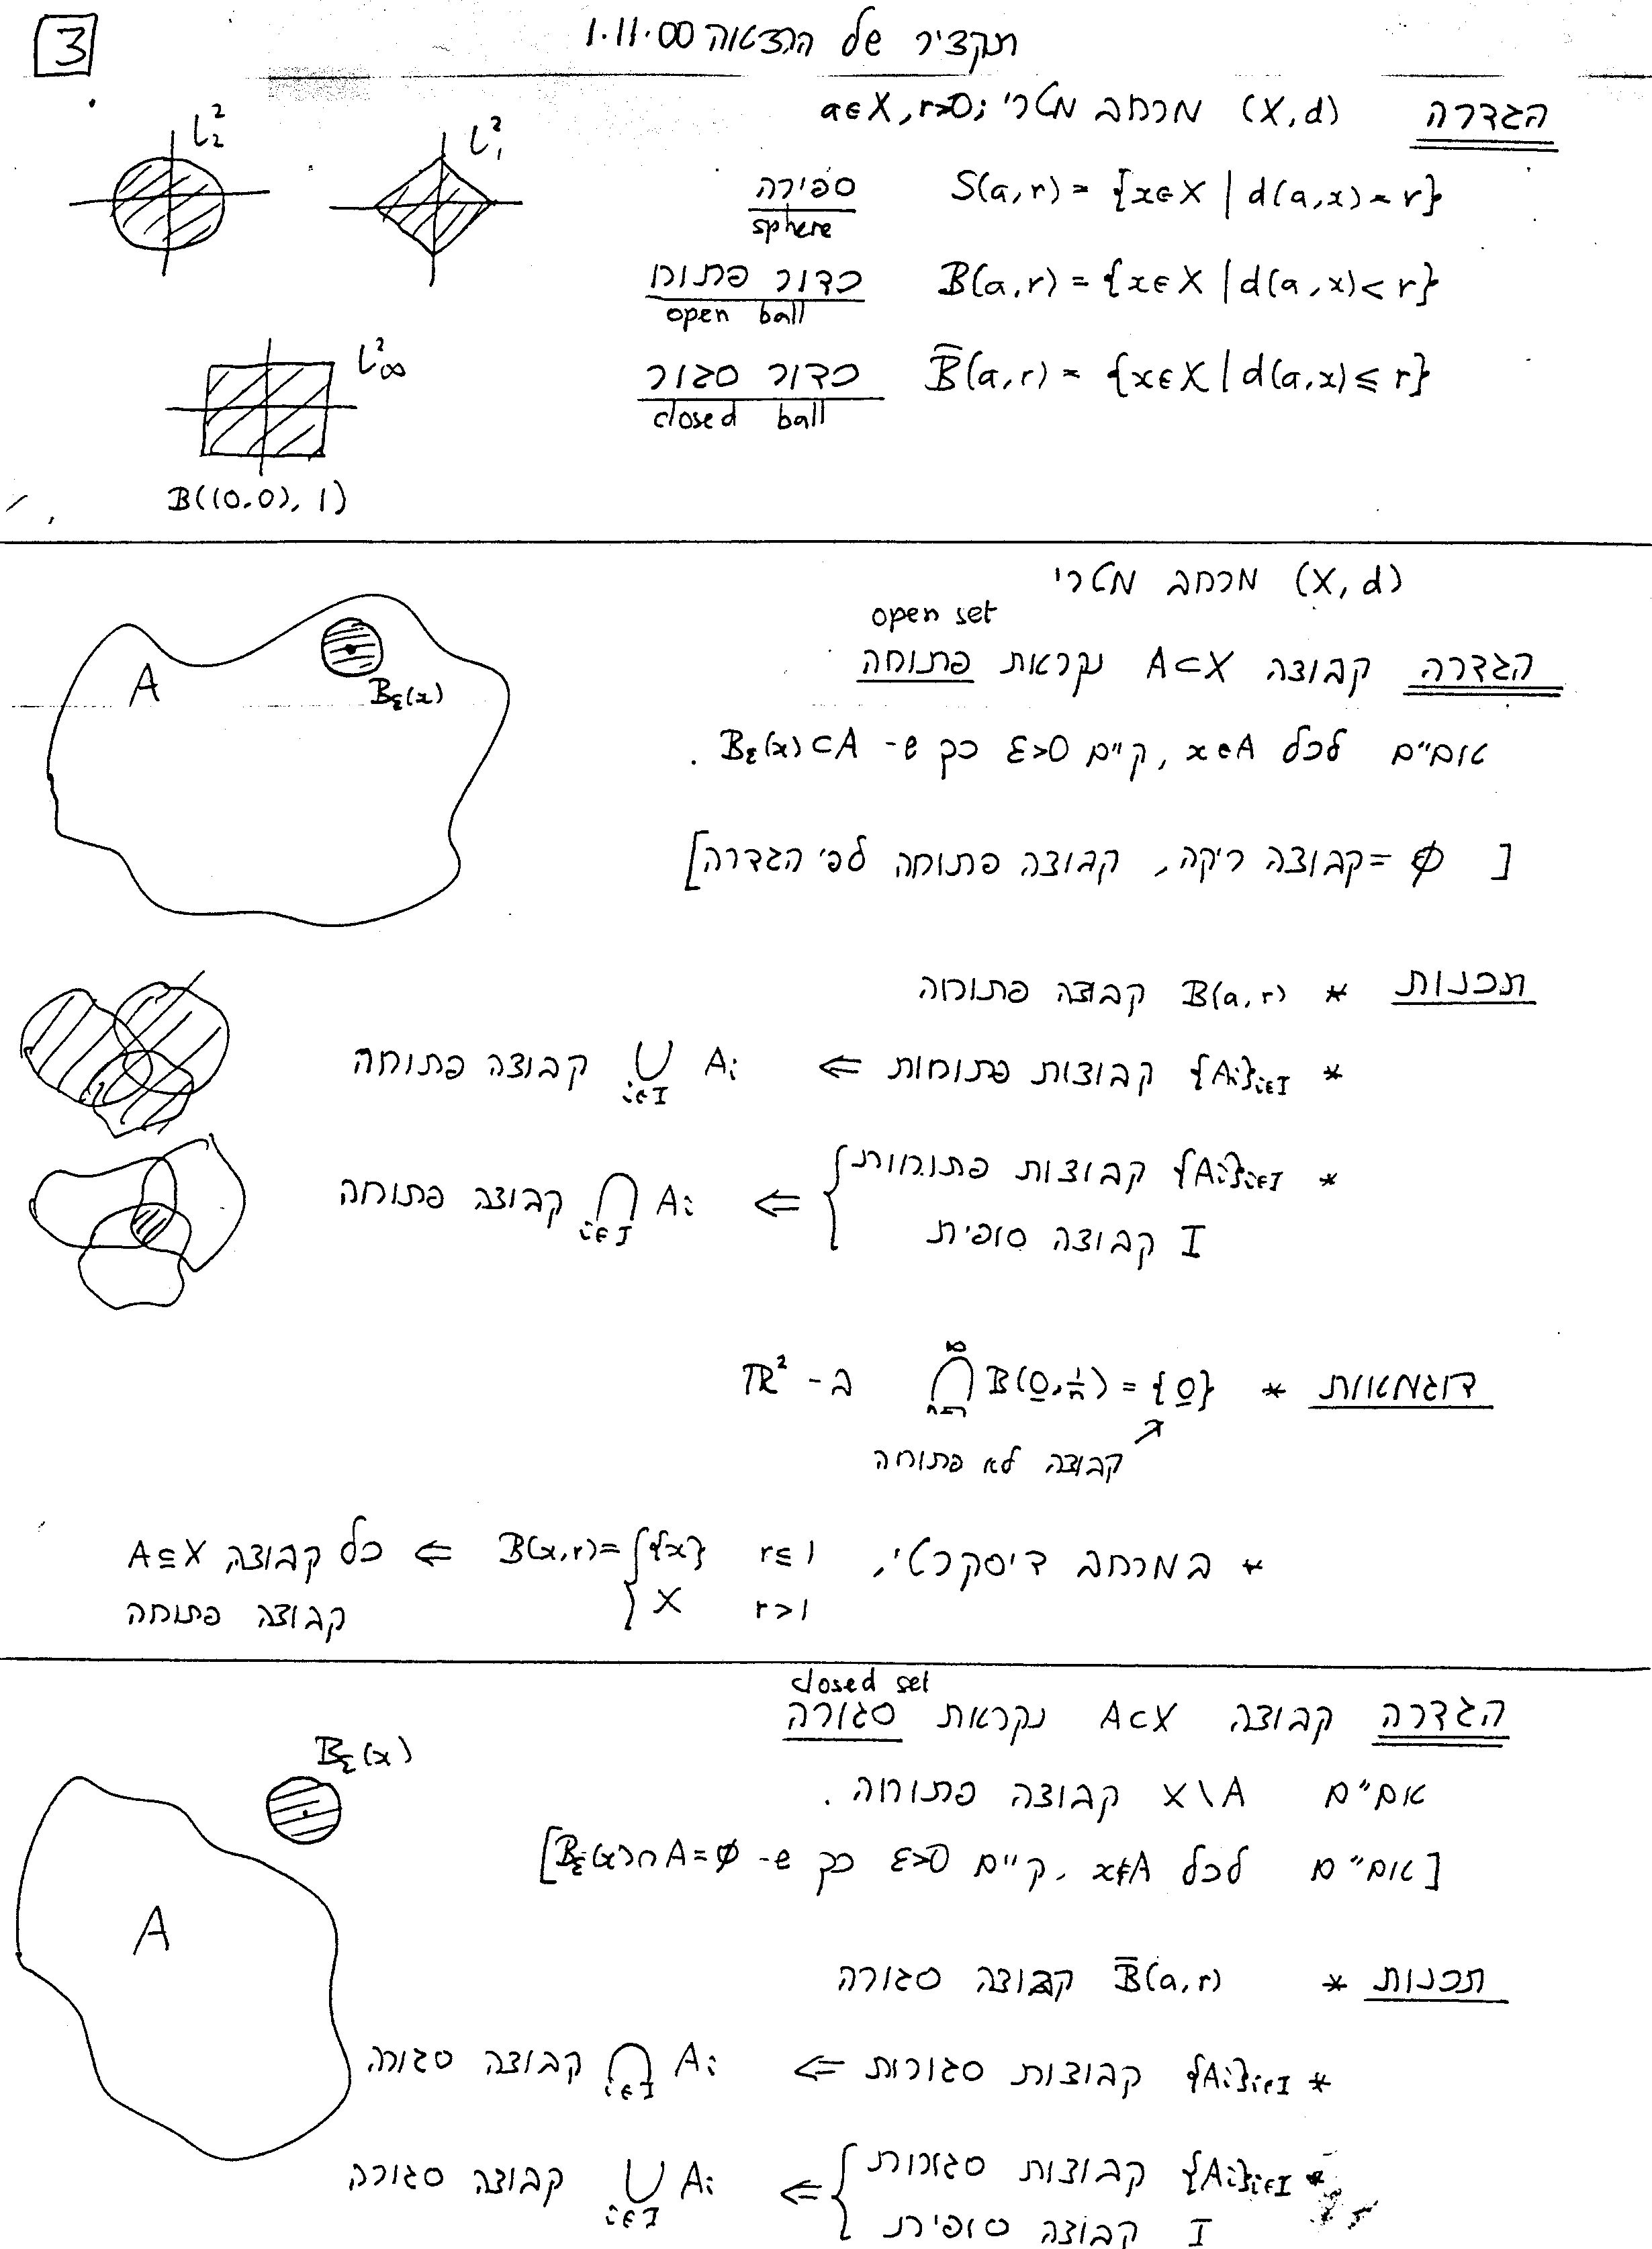 3
תקציר של הרצאה 1.11.00
הגדרה (X,d) מרחב מטרי; a∈X, r>0
l₂² l₁²
ספירה S(a,r) = {x∈X | d(a,x) = r}
sphere
כדור פתוח B(a,r) = {x∈X | d(a,x) < r}
open ball
l∞²
כדור סגור B̅(a,r) = {x∈X | d(a,x) ≤ r}
closed ball
B((0,0), 1)
(X,d) מרחב מטרי
open set
הגדרה קבוצה A⊂X נקראת פתוחה
A
Bε(x)
אם"ם לכל x∈A, קיים ε>0 כך ש- Bε(x)⊂A.
[ ∅ = קבוצה ריקה, קבוצה פתוחה לפי הגדרה]
תכנות * B(a,r) קבוצה פתוחה
* {Ai}i∈I קבוצות פתוחות ⇐ ∪i∈I Ai קבוצה פתוחה
* {Ai}i∈I קבוצות פתוחות
I קבוצה סופית
⇐ ∩i∈I Ai קבוצה פתוחה
דוגמאות * ∩n=1^∞ B(0,1/n) = {0} ב- ℝ²
קבוצה לא פתוחה
* במרחב דיסקרטי, B(x,r) = { {x} r≤1 ⇐ כל קבוצה A⊆X
X r>1 קבוצה פתוחה
closed set
הגדרה קבוצה A⊂X נקראת סגורה
Bε(x)
אם"ם X\A קבוצה פתוחה.
[אם"ם לכל x∉A, קיים ε>0 כך ש- Bε(x)∩A=∅]
A
תכנות * B̅(a,r) קבוצה סגורה
* {Ai}i∈I קבוצות סגורות ⇐ ∩i∈I Ai קבוצה סגורה
* {Ai}i∈I קבוצות סגורות
I קבוצה סופית
⇐ ∪i∈I Ai קבוצה סגורה